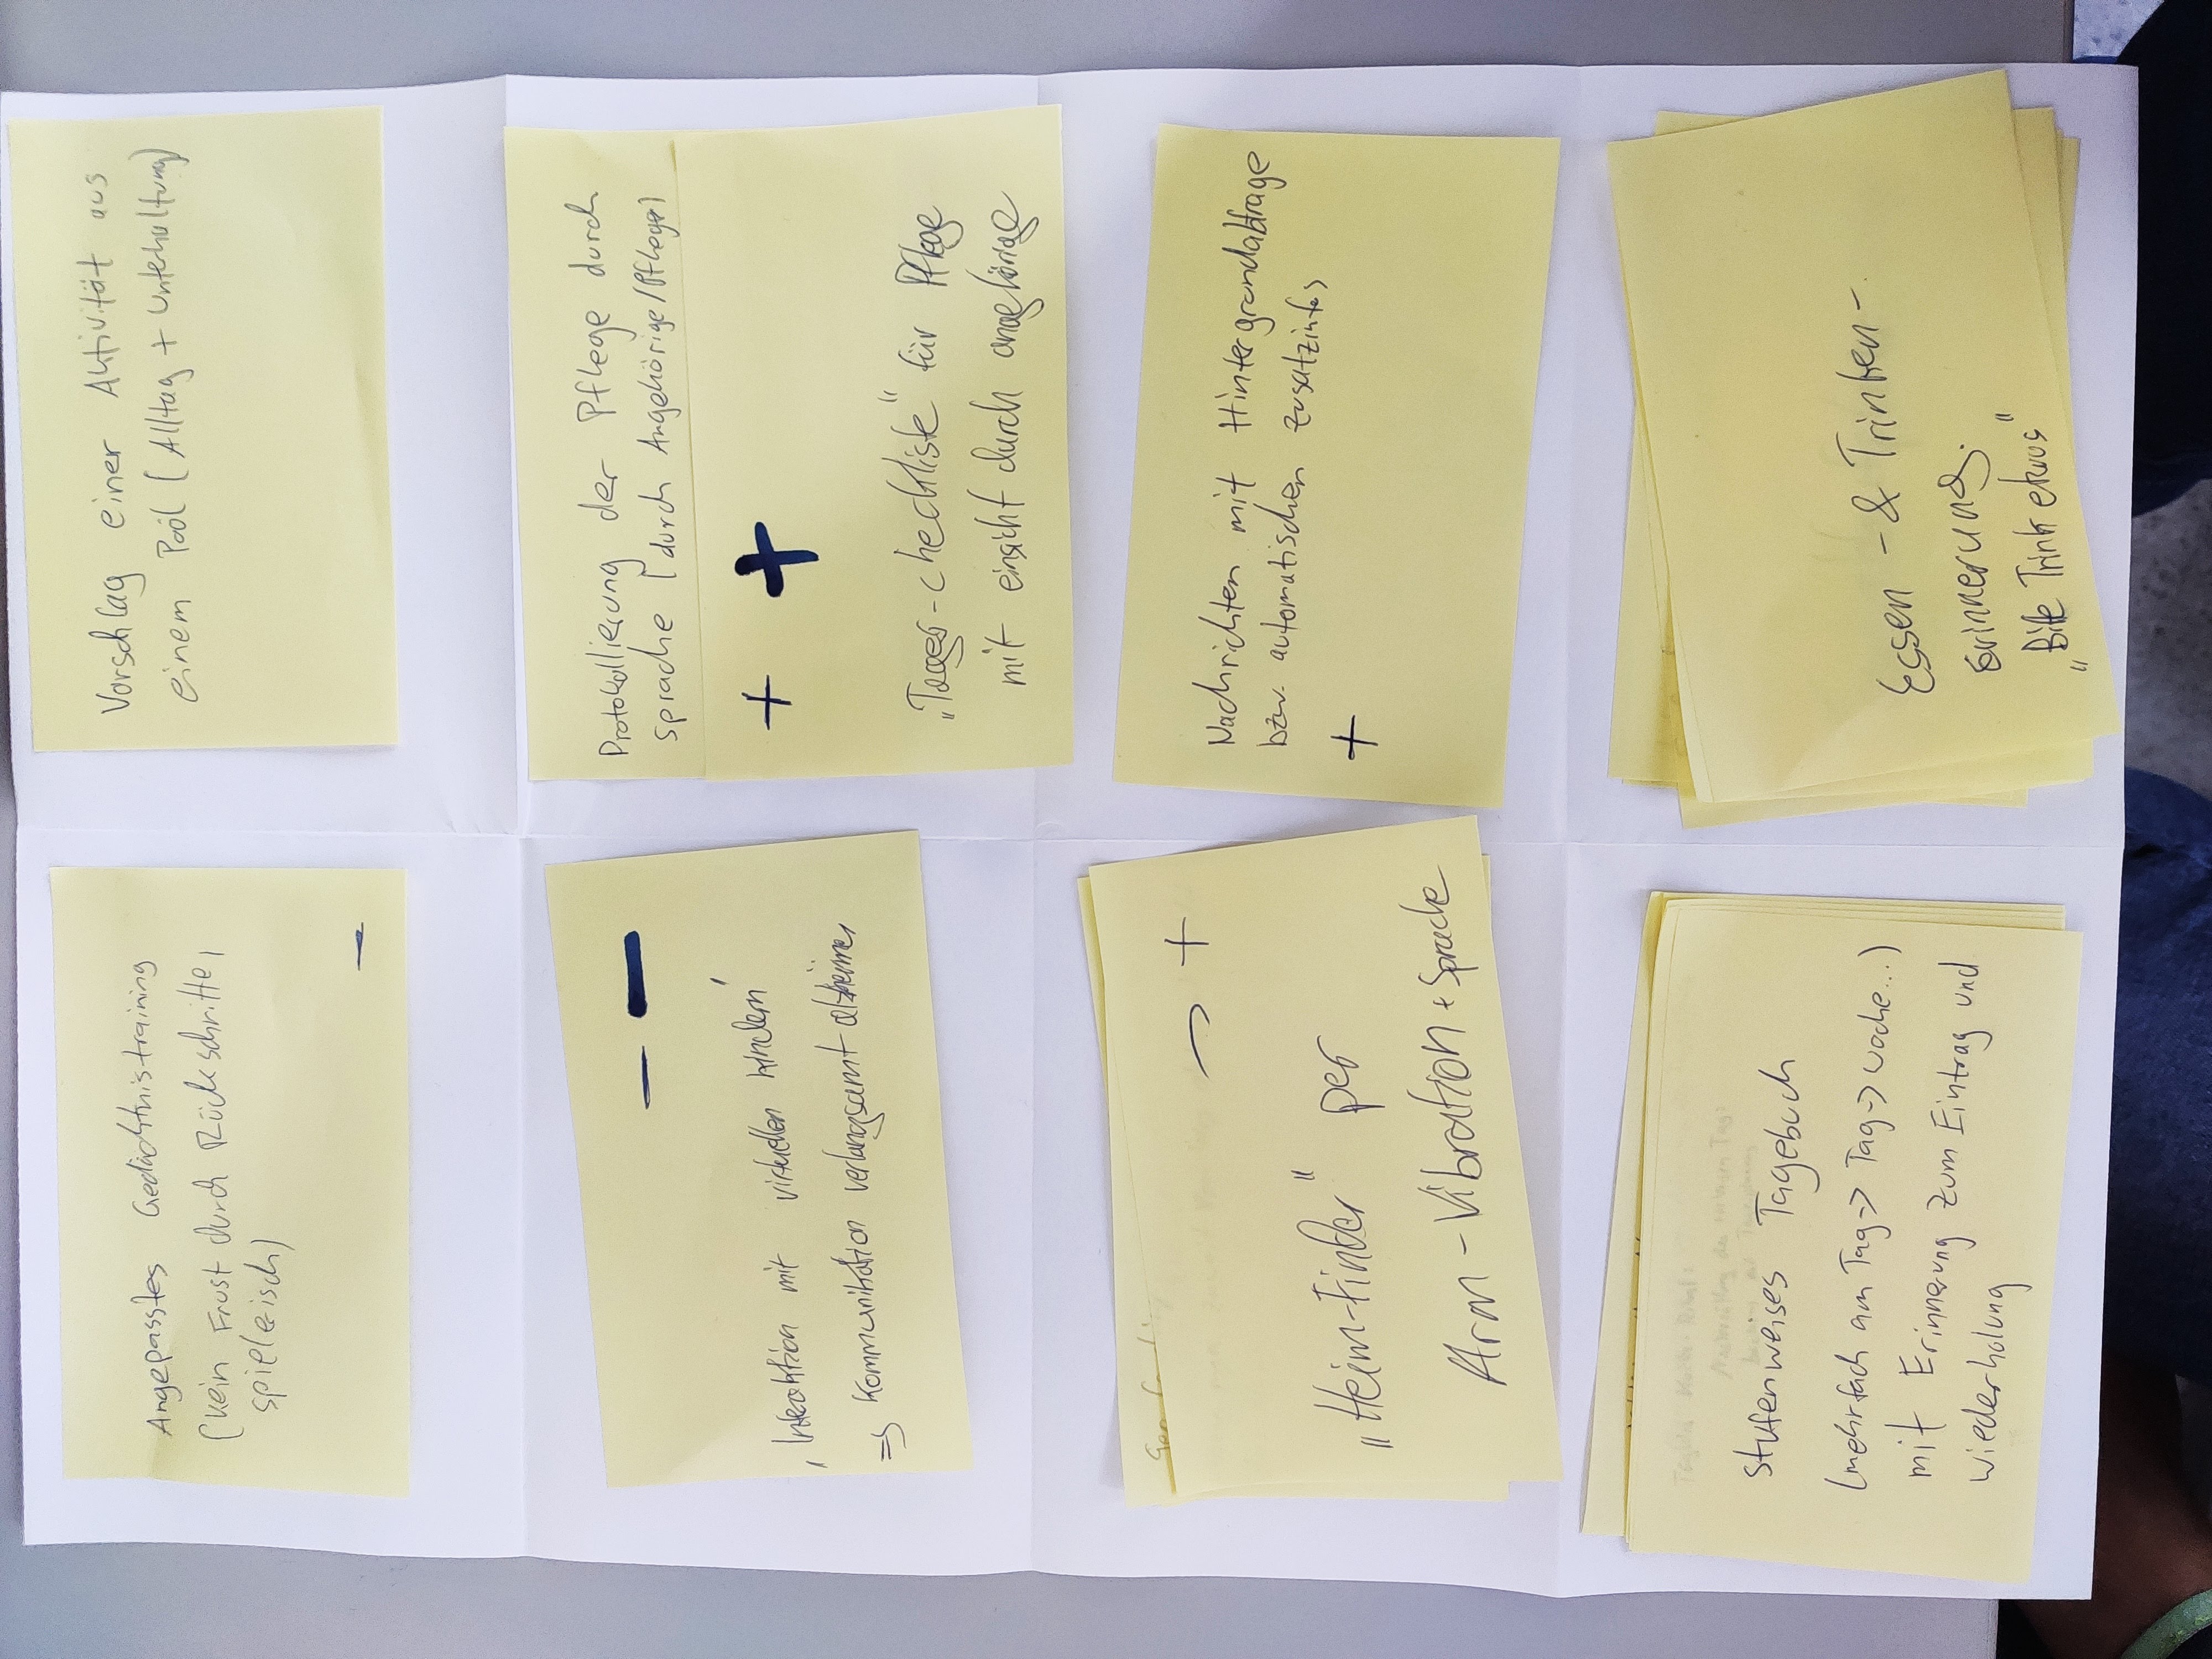 Angepasstes Gedächtnistraining
(kein Frust durch Rückschritte,
spielerisch)
–
Vorschlag einer Aktivität aus
einem Pool (Alltag + Unterhaltung)
– –
„Interaktion mit virtuellen Kindern"
=> Kommunikation verlangsamt alzheimer
Protokollierung der Pflege durch
sprache (durch Angehörige/Pfleger)
+ +
„Tages-checkliste" für Pflege
mit einsicht durch angehörige
– +
„Heim-Finder" per
Arm-Vibration + Sprache
Nachrichten mit Hintergrundabfrage
bzw. automatischen Zusatzinfos
+
stufenweises Tagebuch
(mehrfach am Tag -> Tag -> woche...)
mit Erinnerung zum Eintrag und
wiederholung
Essen - & Trinken -
Erinnerung.
„Bitte Trink etwas"